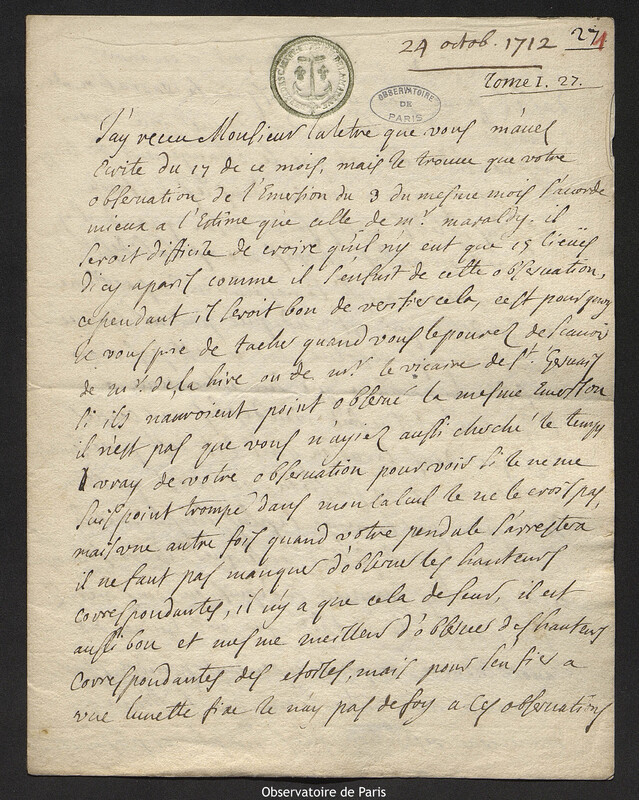 24 octob. 1712 27
Tome I. 27.
OBSERVATOIRE
DE
PARIS
J'ay receu Monsieur la letre que vous m'aues
Ecrite du 17 de ce mois, mais Je trouue que votre
observation de l'Emersion du 3 du mesme mois s'acorde
mieux a l'Estime que celle de mr. maraldy. il
seroit difficile de croire qu'il n'y eut que 15 lieües
d'icy a paris comme il s'ensuit de cette observation,
cependant, il seroit bon de verifier cela, cest pourquoy
Je vous prie de tacher quand vous le pourez de scauoir
de mr. de la hire ou de mr. le vicaire de St. Geruais
si ils n'auroient point observé la mesme Emersion
il n'est pas que vous n'ayiez aussi cherché le temps
vray de votre observation pour voir si Je ne me
suis point trompé dans mon calcul Je ne le crois pas,
mais vne autre fois quand votre pendule s'arrestera
il ne faut pas manquer d'observer les hauteurs
correspondantes, il n'y a que cela de seur, il est
aussi bon et mesme meilleur d'observer des hauteurs
correspondantes des etoiles, mais pour s'en fier a
vne lunette fixe Je n'ay pas de foy a ces observations
Observatoire de Paris